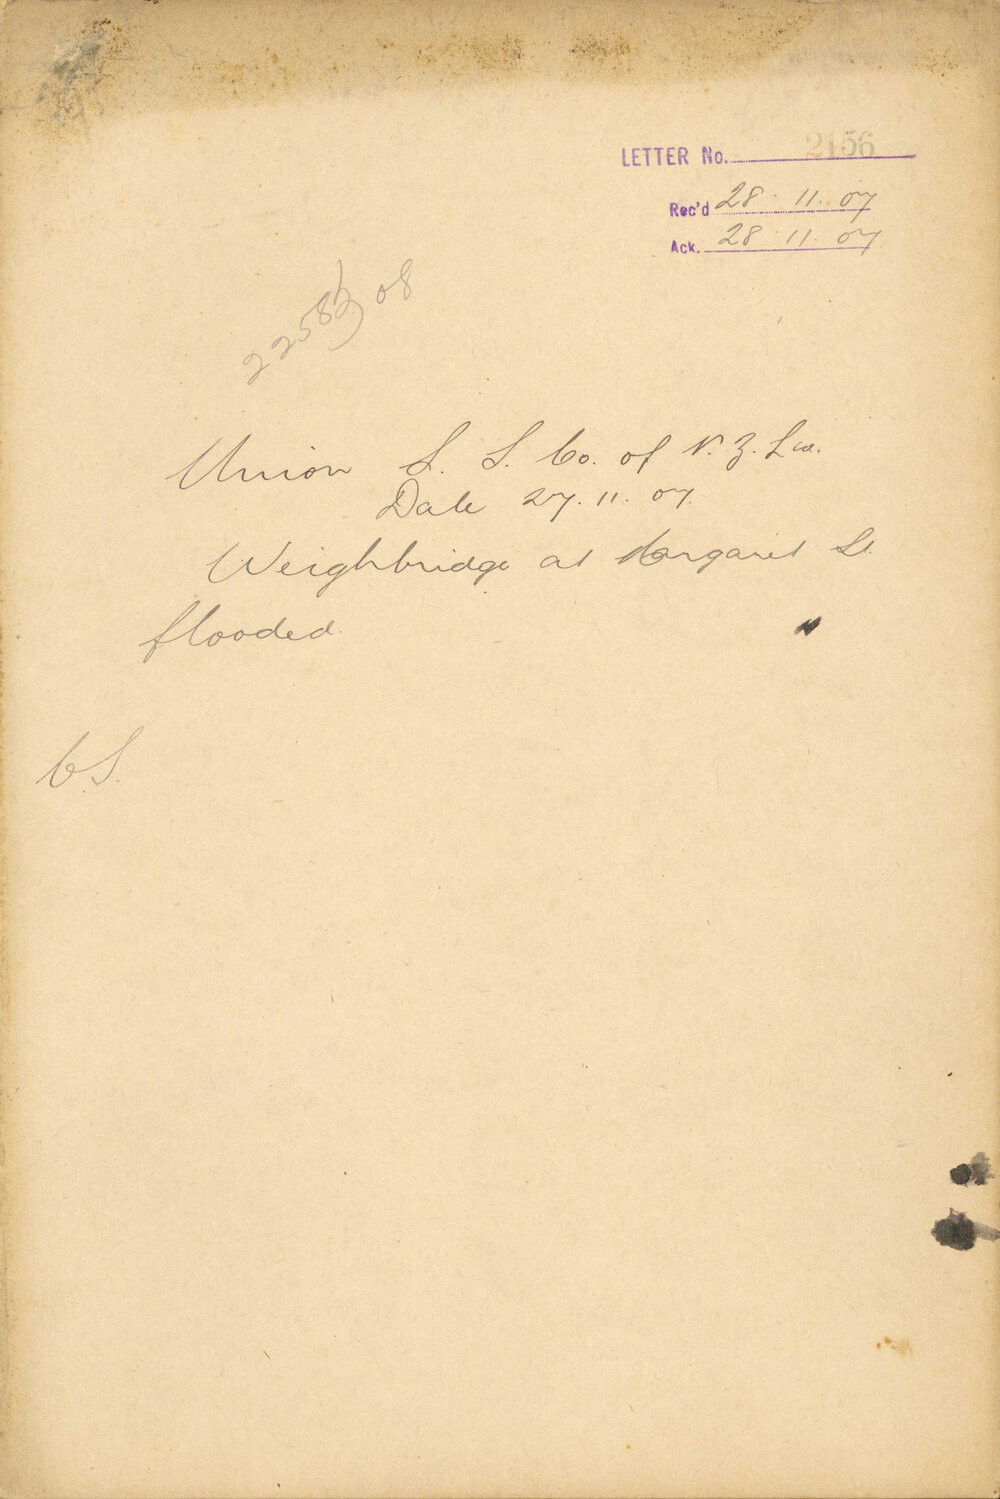 LETTER No. 2156
Rec'd 28.11.07
Ack. 28.11.07
08
Union S. S. Co. of N. Z. Ltd.
Date 27.11.07.
Weighbridge at Margaret St.
flooded.
C.S.